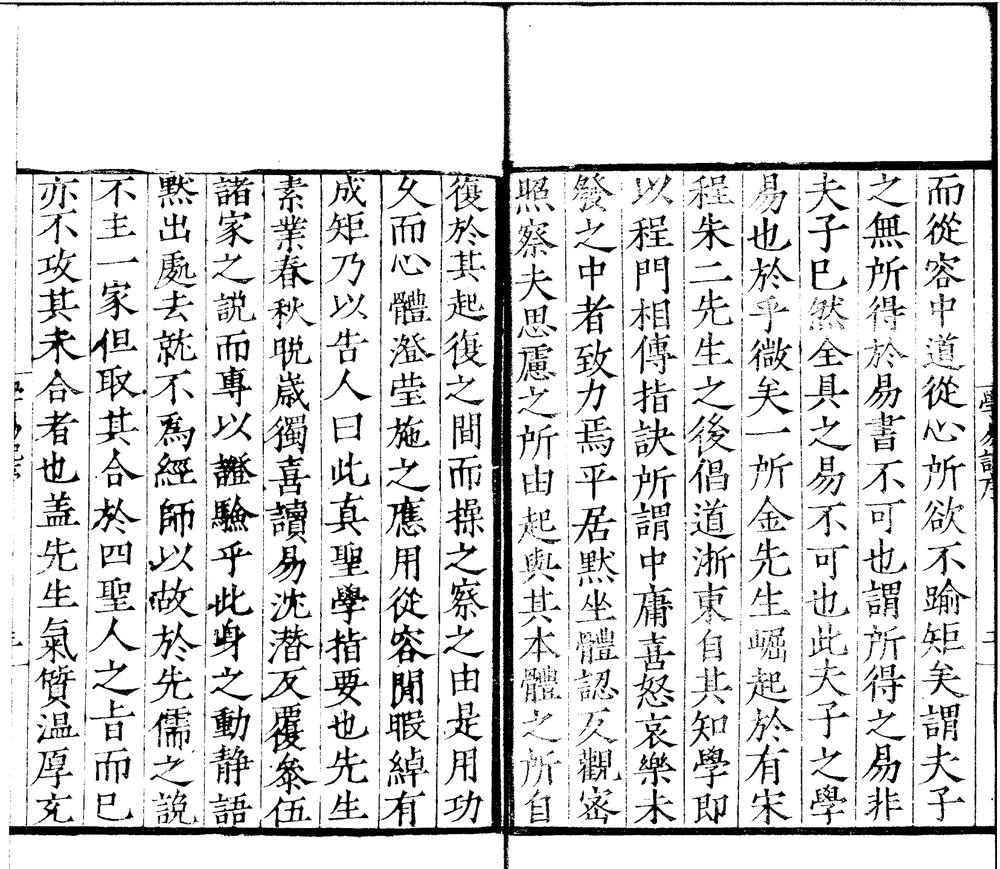 而從容中道從心所欲不踰矩矣謂夫子
之無所得於易書不可也謂所得之易非
夫子已然全具之易不可也此夫子之學
易也於乎微矣一所金先生崛起於有宋
程朱二先生之後倡道淅東自其知學即
以程門相傳指訣所謂中庸喜怒哀樂未
發之中者致力焉平居默坐體認反觀密
照察夫思慮之所由起與其本體之所自
復於其起復之間而操之察之由是用功
久而心體澄瑩施之應用從容閒暇綽有
成矩乃以告人曰此真聖學指要也先生
素業春秋晩歲獨喜讀易沈潜反覆叅伍
諸家之説而專以證驗乎此身之動静語
默出處去就不為經師以故於先儒之説
不主一家但取其合於四聖人之旨而已
亦不攻其未合者也盖先生氣質温厚充
學易記序